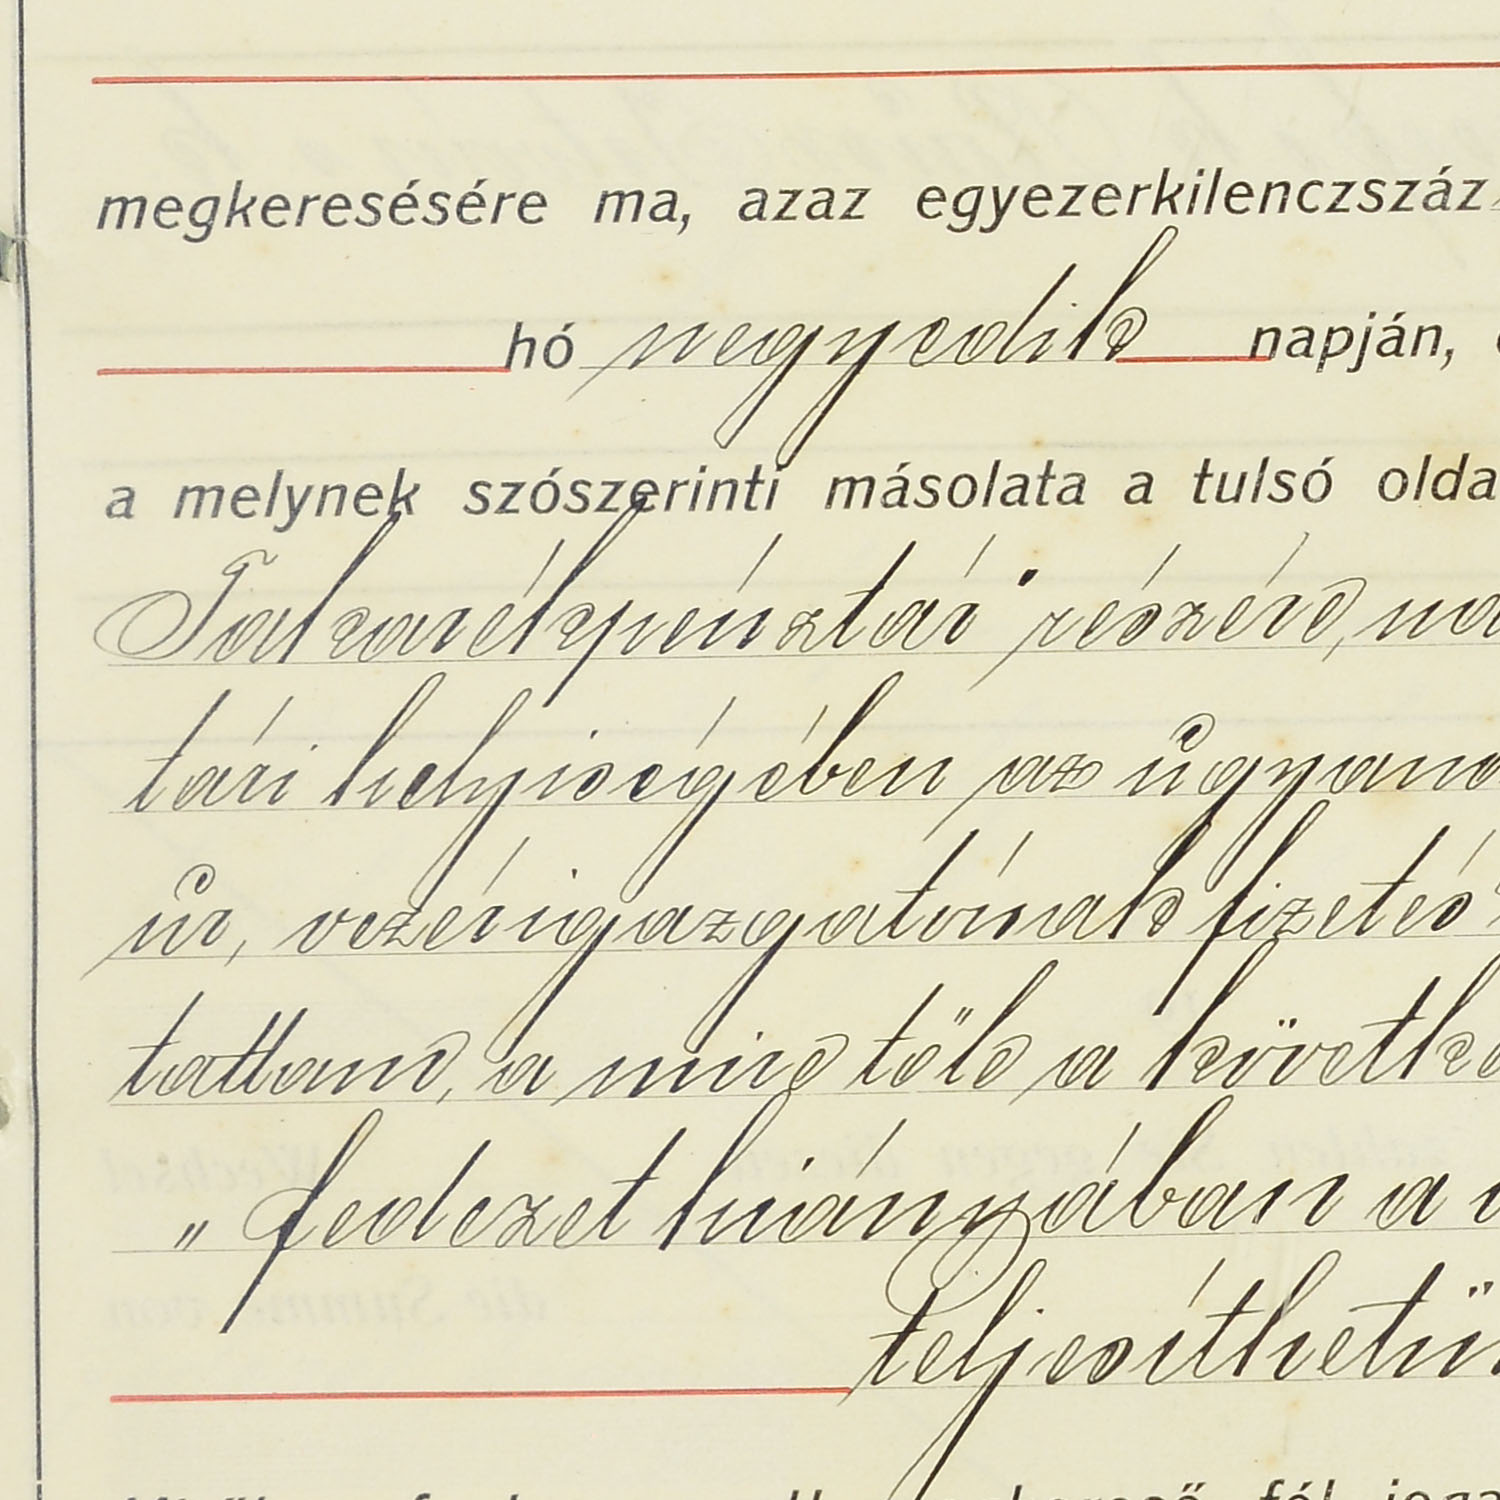 megkeresésére ma, azaz egyezerkilenczszáz
hó negyedik napján,
a melynek szószerinti másolata a tulsó olda
Takarékpénztár" részére, na
tári helyiségében az ugyano
úr, vezérigazgatónak fizetés
tattam, a mire tőle a követke
„fedezet hiányában a
teljesíthetün